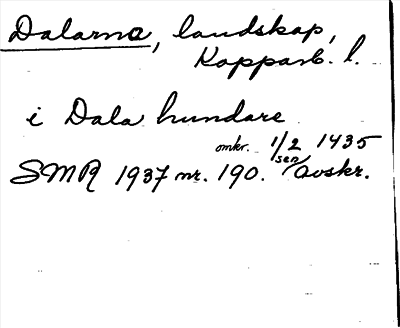 Dalarna, landskap,
Kopparb. l.
i Dala hundare
omkr. 1/2 1435
SMR 1937 nr. 190. sen avskr.